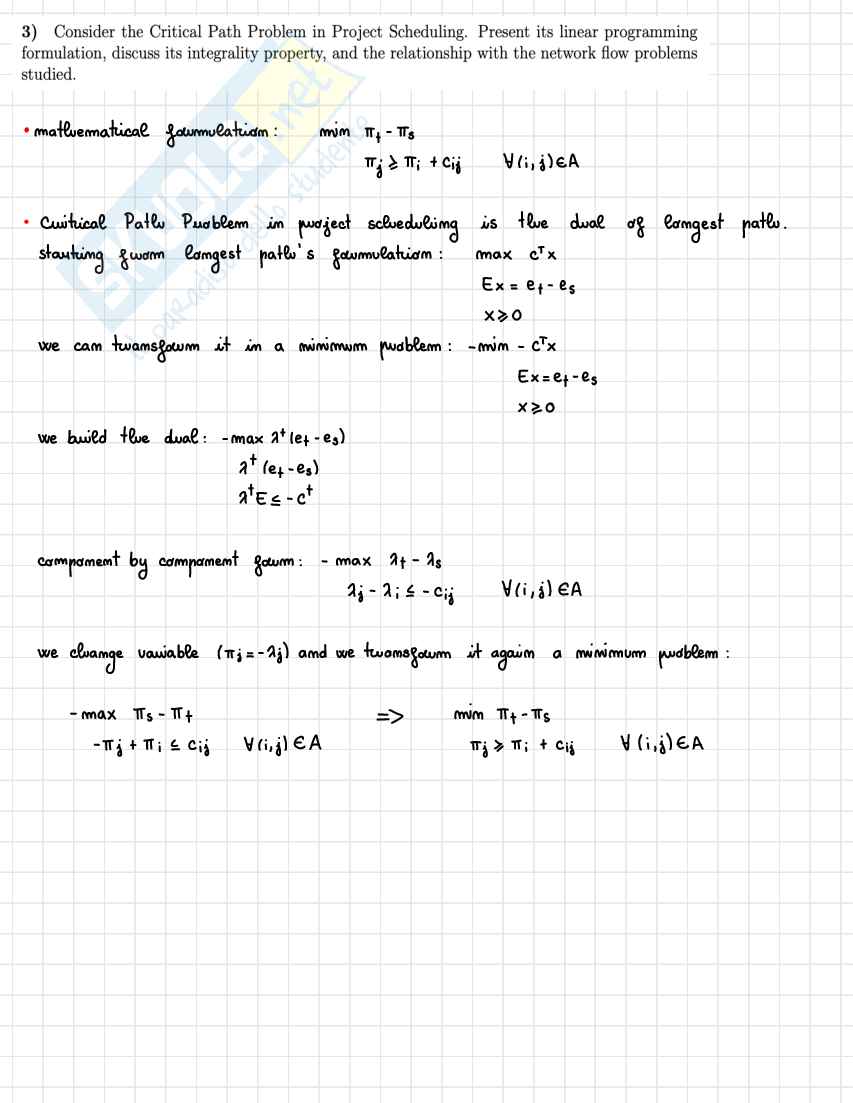 3) Consider the Critical Path Problem in Project Scheduling. Present its linear programming
formulation, discuss its integrality property, and the relationship with the network flow problems
studied.
• mathematical formulation: min πt - πs
πj ≥ πi + cij ∀(i,j)∈A
• Critical Path Problem in project scheduling is the dual of longest path.
starting from longest path's formulation: max cᵀx
Ex = et - es
x≥0
we can transform it in a minimum problem: -min - cᵀx
Ex=et-es
x≥0
we build the dual: -max λᵗ(et-es)
λᵗ(et-es)
λᵗE ≤ -cᵗ
component by component form: - max λt - λs
λj - λi ≤ - cij ∀(i,j)∈A
we change variable (πj=-λj) and we transform it again a minimum problem:
-max πs - πt => min πt - πs
-πj + πi ≤ cij ∀(i,j)∈A πj ≥ πi + cij ∀(i,j)∈A
SKUOLA.net
il paradiso dello studente